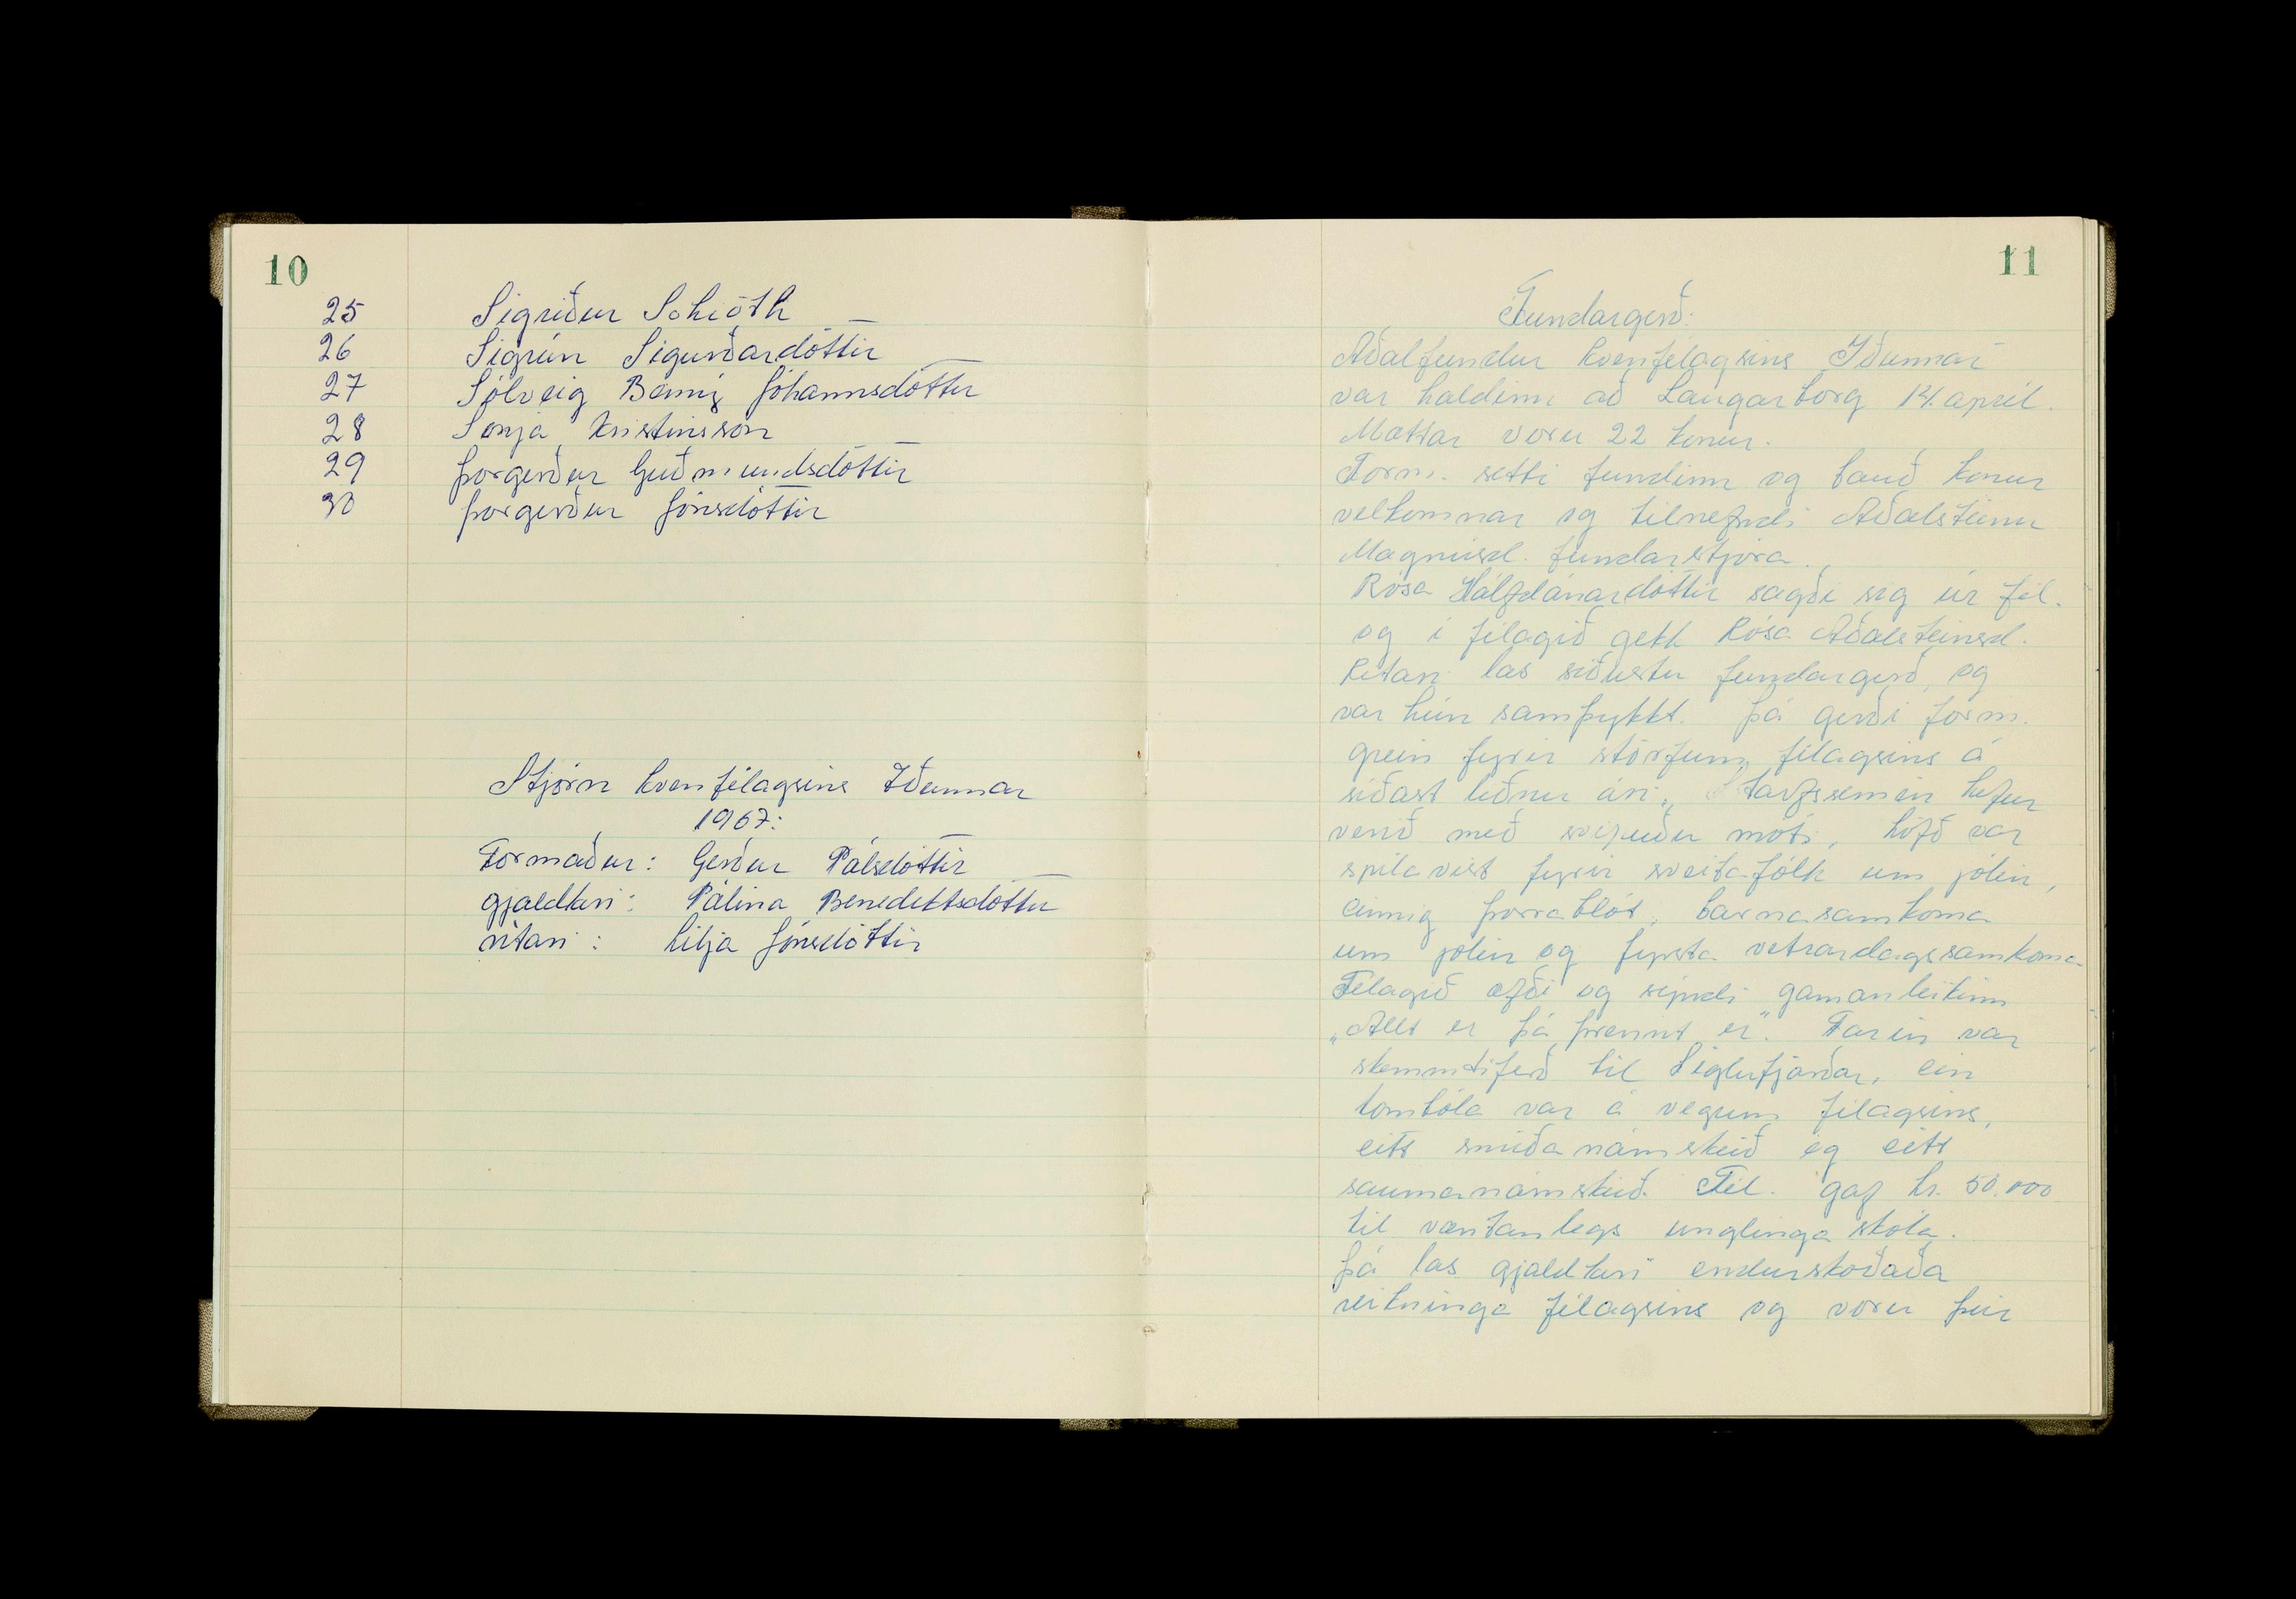 10
25 Sigríður Schiöth
26 Sigrún Sigurðardóttir
27 Sólveig Bennÿ Jóhannsdóttir
28 Sonja Kristinsson
29 Þorgerður Guðmundsdóttir
30 Þorgerður Jónsdóttir
Stjórn kvenfélagsins Iðunnar
1967:
Formaður: Gerður Pálsdóttir
gjaldkeri: Pálína Benediktsdóttir
ritari: Lilja Jónsdóttir
11
Fundargerð:
Aðalfundur kvenfélagsins Iðunnar
var haldinn að Laugarborg 14. apríl.
Mættar voru 22 konur.
Form. setti fundinn og bauð konur
velkomnar og tilnefndi Aðalsteinu
Magnúsd. fundarstjóra.
Rósa Hálfdánardóttir sagði sig úr fél.
og í félagið gekk Rósa Aðalsteinsd.
Ritari las síðustu fundargerð, og
var hún samþykkt. Þá gerði form.
grein fyrir störfum félagsins á
síðast liðnu ári. Starfssemin hefur
verið með svipuðu móti, höfð var
spilavist fyrir sveitafólk um jólin,
einnig þorrablót, barnasamkoma
um jólin og fyrsta vetrardagssamkoma
Félagið æfði og sýndi gamanleikinn
„Allt er þá þrennt er". Farin var
skemmtiferð til Siglufjarðar, ein
tombóla var á vegum félagsins,
eitt sníðanámskeið og eitt
saumanámskeið. Fél. gaf kr. 50.000
til væntanlegs unglingaskóla.
Þá las gjaldkeri endurskoðaða
reikninga félagsins og voru þeir